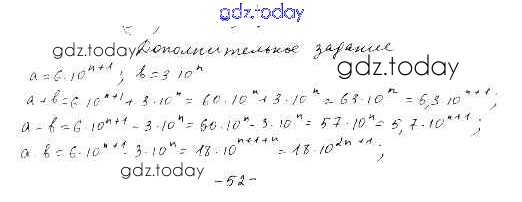 gdz.today
gdz.today Дополнительное задание
a=6·10ⁿ⁺¹; b=3·10ⁿ
gdz.today
a+b=6·10ⁿ⁺¹+3·10ⁿ=60·10ⁿ+3·10ⁿ=63·10ⁿ=6,3·10ⁿ⁺¹;
a-b=6·10ⁿ⁺¹-3·10ⁿ=60·10ⁿ-3·10ⁿ=57·10ⁿ=5,7·10ⁿ⁺¹;
a·b=6·10ⁿ⁺¹·3·10ⁿ=18·10ⁿ⁺¹⁺ⁿ=18·10²ⁿ⁺¹;
gdz.today
-52-